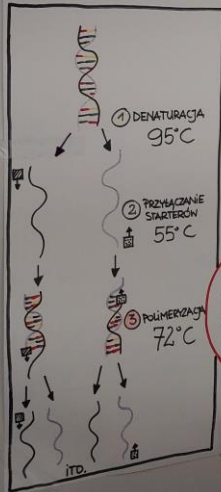 ① DENATURACJA
95°C
② PRZYŁĄCZANIE
STARTERÓW
55°C
③ POLIMERYZACJA
72°C
ITD.